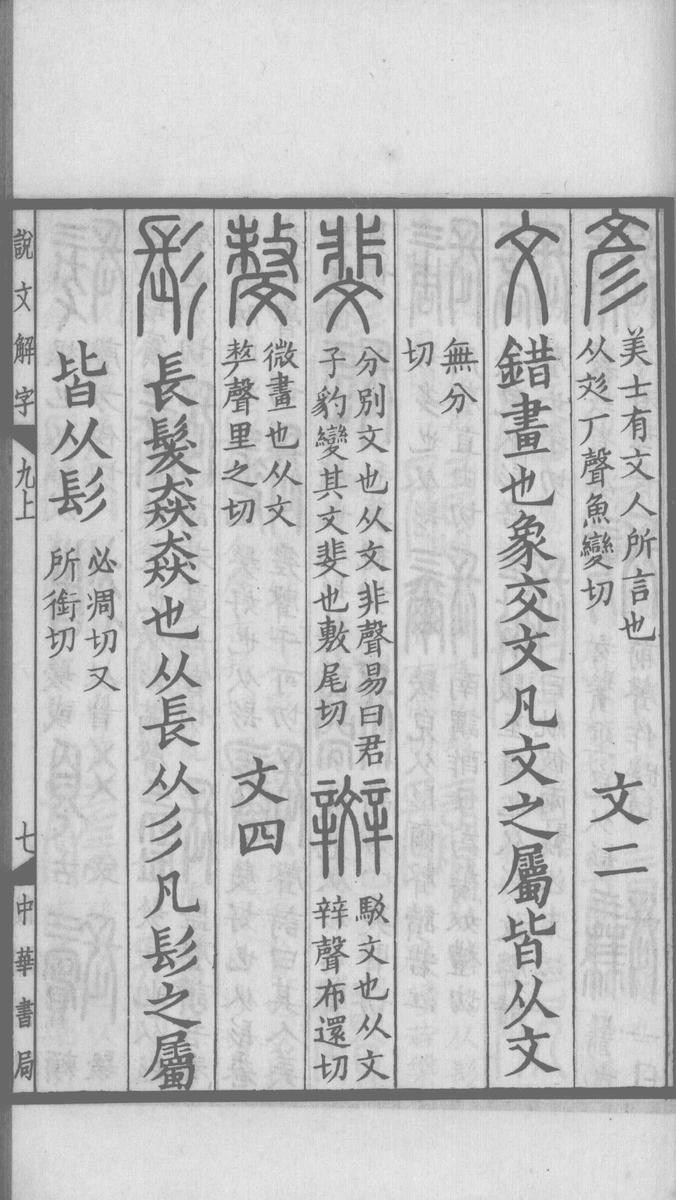 彣 美士有文人所言也
从彣厂聲魚變切
文二
文 錯畫也象交文凡文之屬皆从文
無分
切
斐 分別文也从文非聲易曰君
子豹變其文斐也敷尾切
辬 駁文也从文
辡聲布還切
嫠 微畫也从文
𠩺聲里之切
文四
髟 長髮猋猋也从長从彡凡髟之屬
皆从髟 必凋切又
所銜切
說文解字 九上 七 中華書局